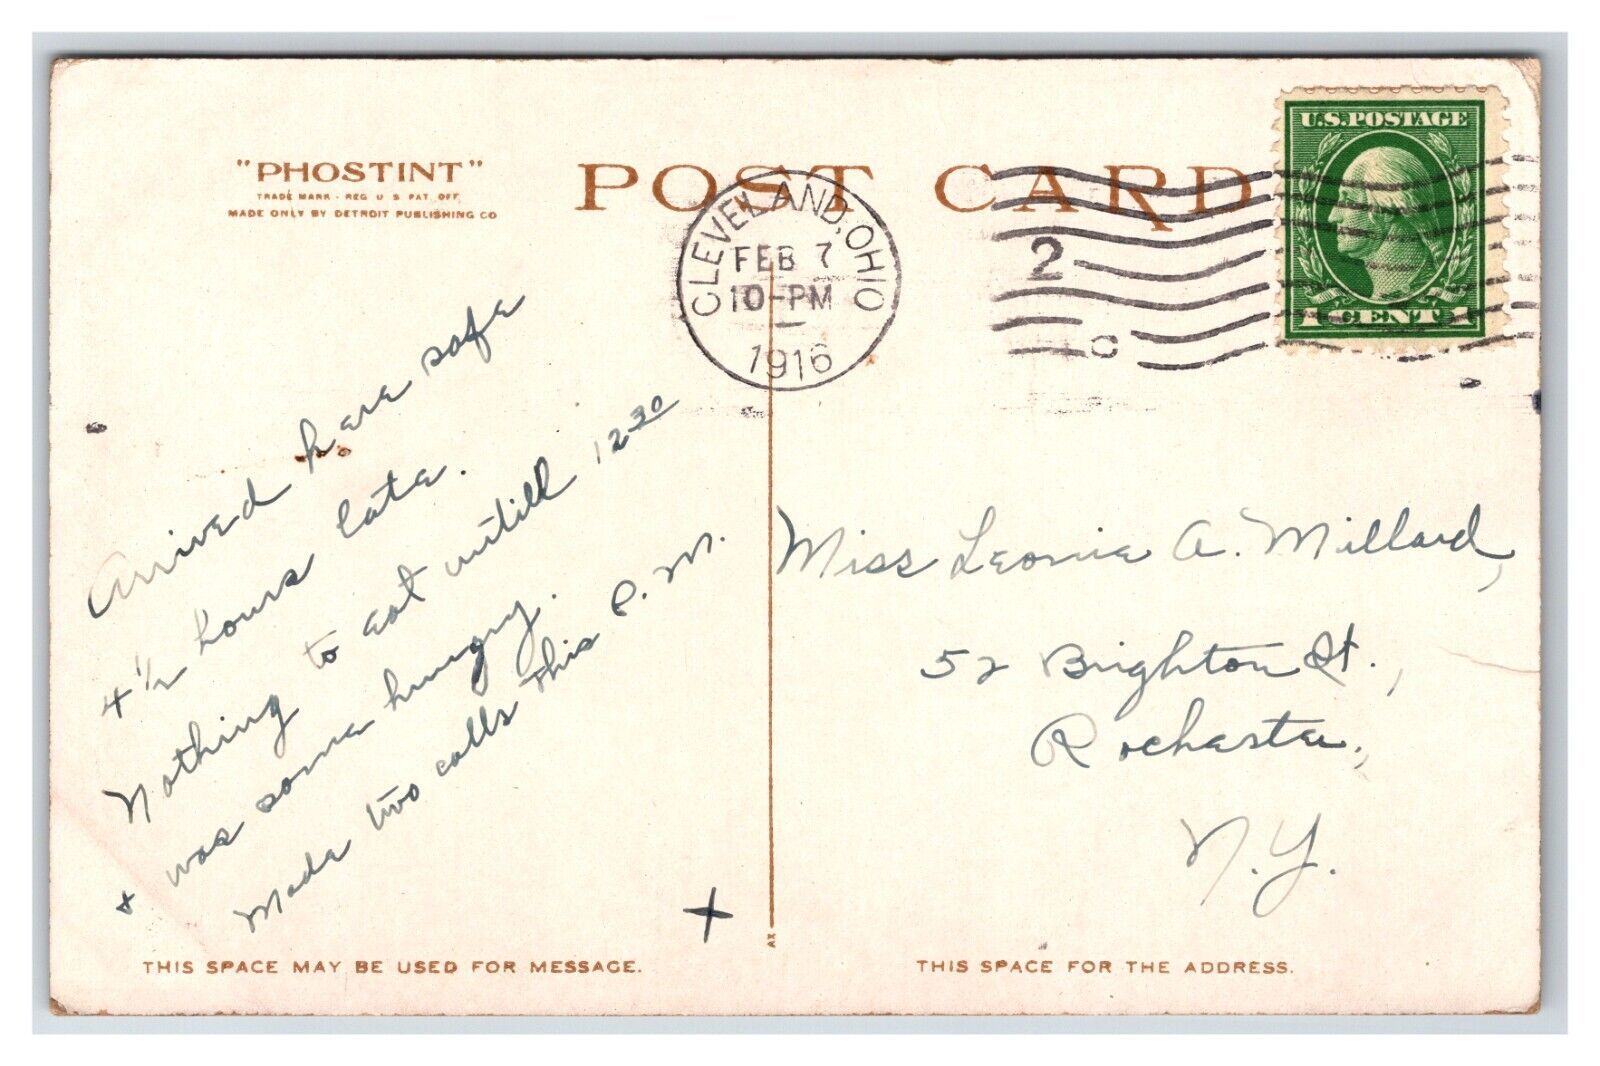 "PHOSTINT"
TRADE MARK - REG U S PAT. OFF.
MADE ONLY BY DETROIT PUBLISHING CO
POST CARD
CLEVELAND, OHIO
FEB 7
10-PM
1916
2
C
U.S. POSTAGE
1 CENT 1
Arrived here safe
4 1/2 hours late.
Nothing to eat untill 12 30
+ was some hungry.
Made two calls this P.M.
X
Miss Leonie A. Millard,
52 Brighton St.,
Rochester,
N.Y.
AX
THIS SPACE MAY BE USED FOR MESSAGE.
THIS SPACE FOR THE ADDRESS.